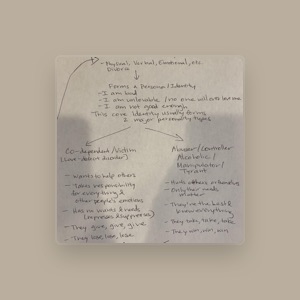 - Physical, Verbal, Emotional, etc.
Divorce
Forms a Persona / Identity
- I am bad
- I am unloveable / no one will ever love me
- I am not good enough
This core identity usually forms
2 major personality types
Co-dependent / Victim
(Love-deficit disorder)
- Wants to help others
- Takes responsibility
for everything &
other people's emotions
- Has no wants & needs
(represses & suppresses)
- They give, give, give
- They lose, lose, lose
Abuser / Controller
Alcoholic /
Manipulator /
Tyrant
- Hurts others or themselves
- Only their needs
matter
- They're the best &
know everything
- They take, take, take
- They win, win, win